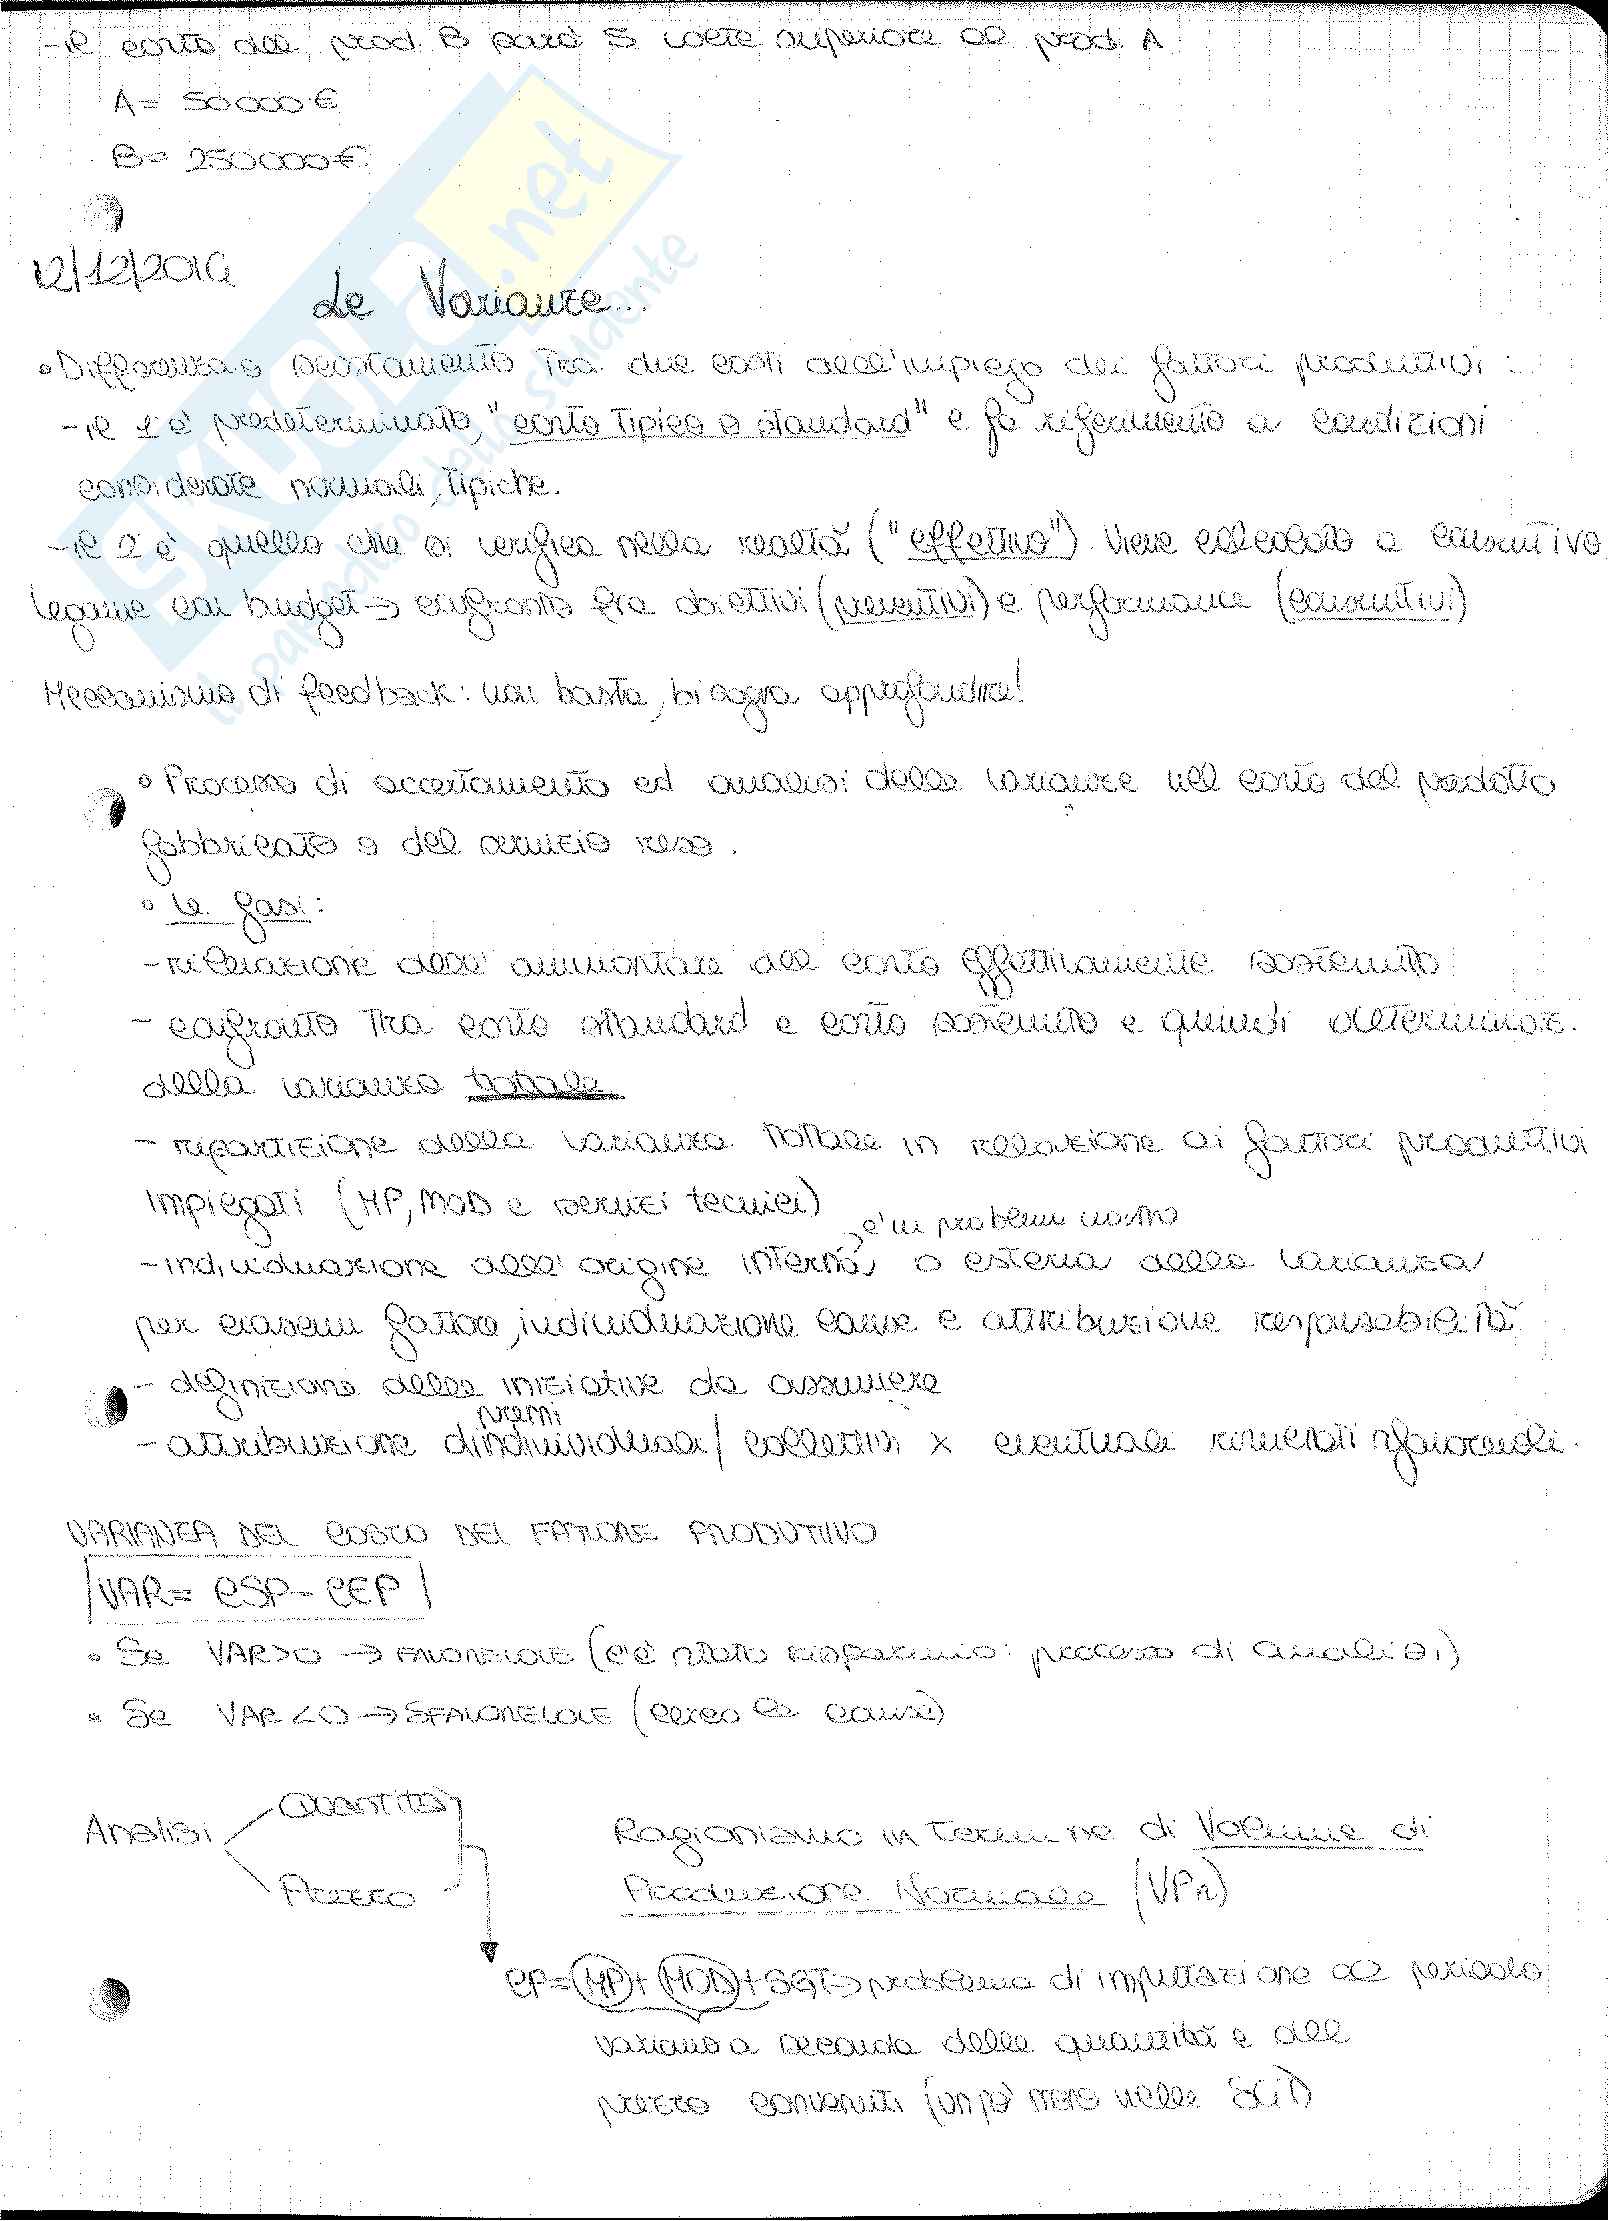 - il costo del prod. B sarà 5 volte superiore al prod. A
A = 50000 €
B = 250000 €
12/12/2016
Le Varianze...
• Differenza o scostamento tra due costi dell'impiego dei fattori produttivi:
- il 1° è predeterminato, "costo tipico o standard" e fa riferimento a condizioni
considerate normali, tipiche.
- il 2° è quello che si verifica nella realtà ("effettivo"). Viene calcolato a consuntivo
legame con budget → confronto fra obiettivi (preventivi) e performance (consuntivi)
Meccanismo di feedback: non basta, bisogna approfondire!
• Processo di accertamento ed analisi delle varianze nel costo del prodotto
fabbricato o del servizio reso.
• Le fasi:
- rilevazione dell'ammontare del costo effettivamente sostenuto
- confronto tra costo standard e costo sostenuto e quindi determinaz.
della varianza totale
- ripartizione della varianza totale in relazione ai fattori produttivi
impiegati (MP, MOD e servizi tecnici)
è un problema nostro
- individuazione dell'origine interna o esterna della varianza
per ciascun fattore, individuazione cause e attribuzione responsabilità
- definizione delle iniziative da assumere
premi
- attribuzione di individuali/collettivi x eventuali risultati sfavorevoli.
VARIANZA DEL COSTO DEL FATTORE PRODUTTIVO
VAR = CSP - CEP
• Se VAR>0 → FAVOREVOLE (c'è stato risparmio: processo di analisi)
• Se VAR<0 → SFAVOREVOLE (cerco le cause)
Analisi
Quantità
Prezzo
Ragioniamo in termine di Volume di
Produzione Normale (VPn)
CP = (MP) + (MOD) + SGT → problema di imputazione al periodo
variano a seconda delle quantità e del
prezzo convenuti (un po' meno nelle
skuola.net
il paradiso dello studente